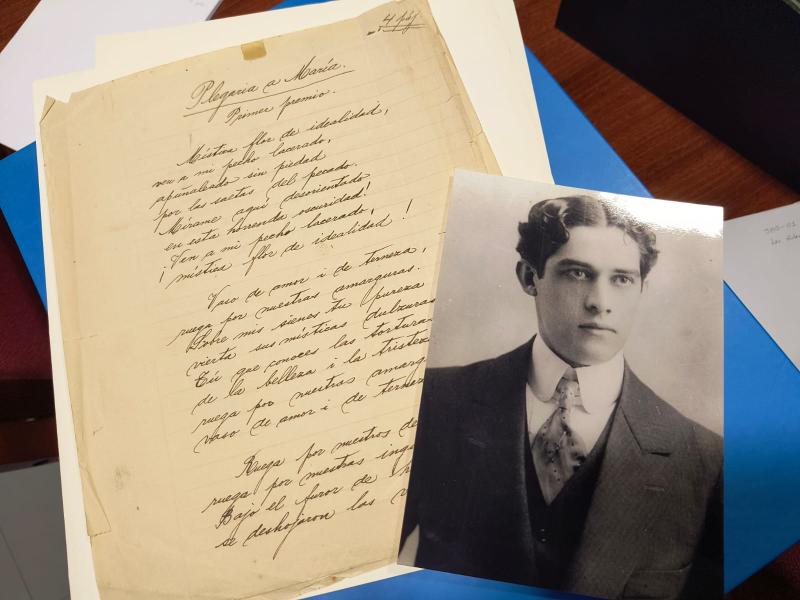 4 pág
Plegaria a María.
Primer premio.
Mística flor de idealidad,
ven a mi pecho lacerado,
apuñaleado sin piedad
por las saetas del pecado.
Mírame aquí desorientado
en esta horrenda oscuridad!
¡Ven a mi pecho lacerado,
mística flor de idealidad!
Vaso de amor i de terneza,
ruega por nuestras amarguras.
Sobre mis sienes tu pureza
vierta sus místicas dulzuras
Tú que conoces las tortura
de la belleza i la tristez
ruega por nuestras amarg
vaso de amor i de ternez
Ruega por nuestros de
ruega por nuestras ing
Bajo el furor de
se deshojaron las